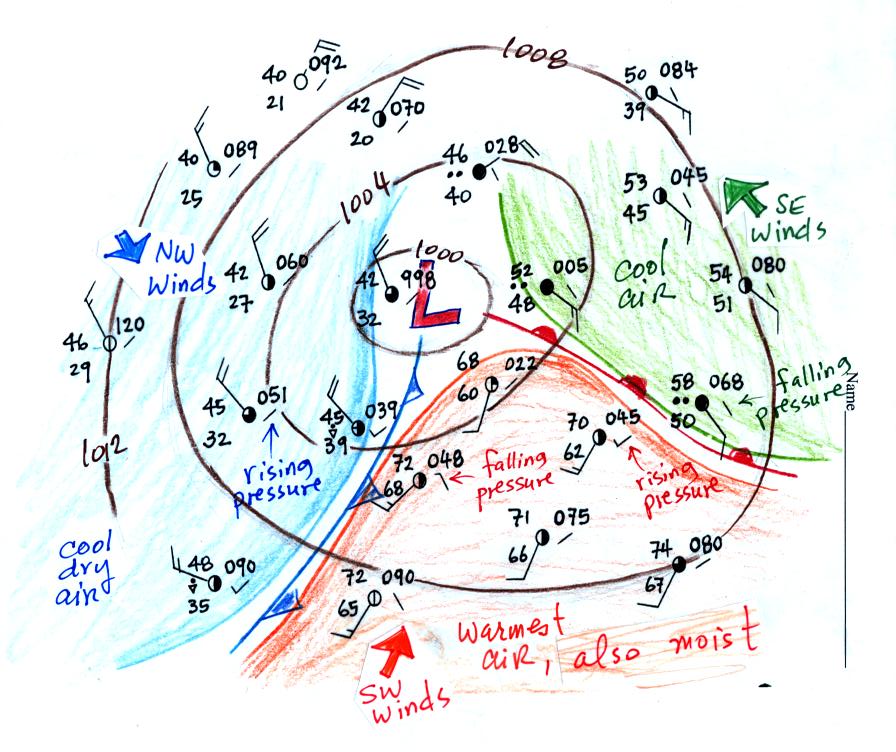 1008
40 092
21
50 084
39
42 070
20
46 028
40
40 089
25
1004
53 045
45
SE
Winds
NW
Winds
42 060
27
1000
42 998
32
L
52 005
48
cool
air
54 080
51
46 120
29
68 022
60
58 068
50
falling
pressure
Name
45 051
32
45 039
39
70 045
62
1012
rising
pressure
72 048
68
falling
pressure
rising
pressure
71 075
66
cool
dry
air
48 090
35
72 090
65
74 080
67
Warmest
air, also moist
SW
Winds